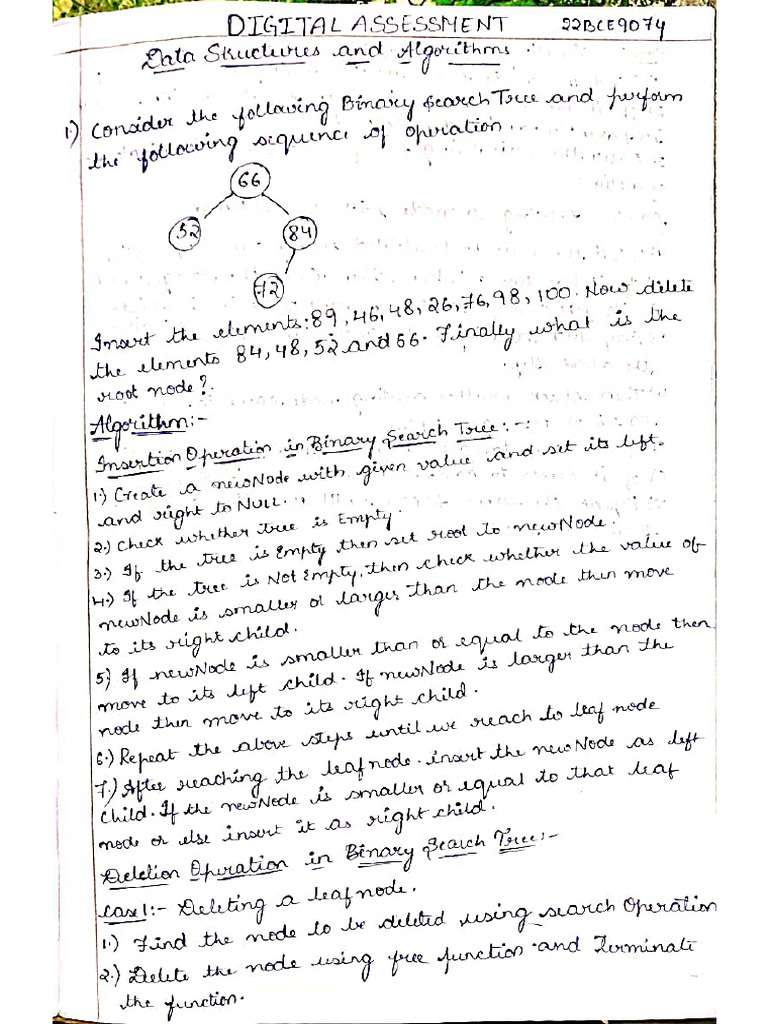 DIGITAL ASSESSMENT 22BCE9074
Data Structures and Algorithms.
1) Consider the following Binary Search Tree and perform
the following sequence of operation.
66
52 84
72
Insert the elements: 89, 46, 48, 26, 76, 98, 100. Now delete
the elements 84, 48, 52 and 66. Finally what is the
root node?
Algorithm:-
Insertion Operation in Binary Search Tree:-
1.) Create a newNode with given value and set its left
and right to NULL.
2.) Check whether tree is Empty.
3.) If the tree is Empty then set root to newNode.
4.) If the tree is Not Empty, then check whether the value of
newNode is smaller or larger than the node then move
to its right child.
5) If newNode is smaller than or equal to the node then
move to its left child. If newNode is larger than the
node then move to its right child.
6.) Repeat the above steps until we reach to leaf node
7.) After reaching the leaf node. insert the newNode as left
child. If the newNode is smaller or equal to that leaf
node or else insert it as right child.
Deletion Operation in Binary Search Tree:-
Case 1:- Deleting a leaf node.
1.) Find the node to be deleted using search Operation
2.) Delete the node using free function and Terminate
the function.